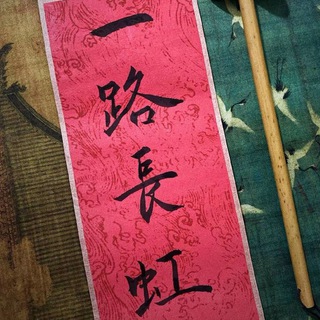 一路長虹